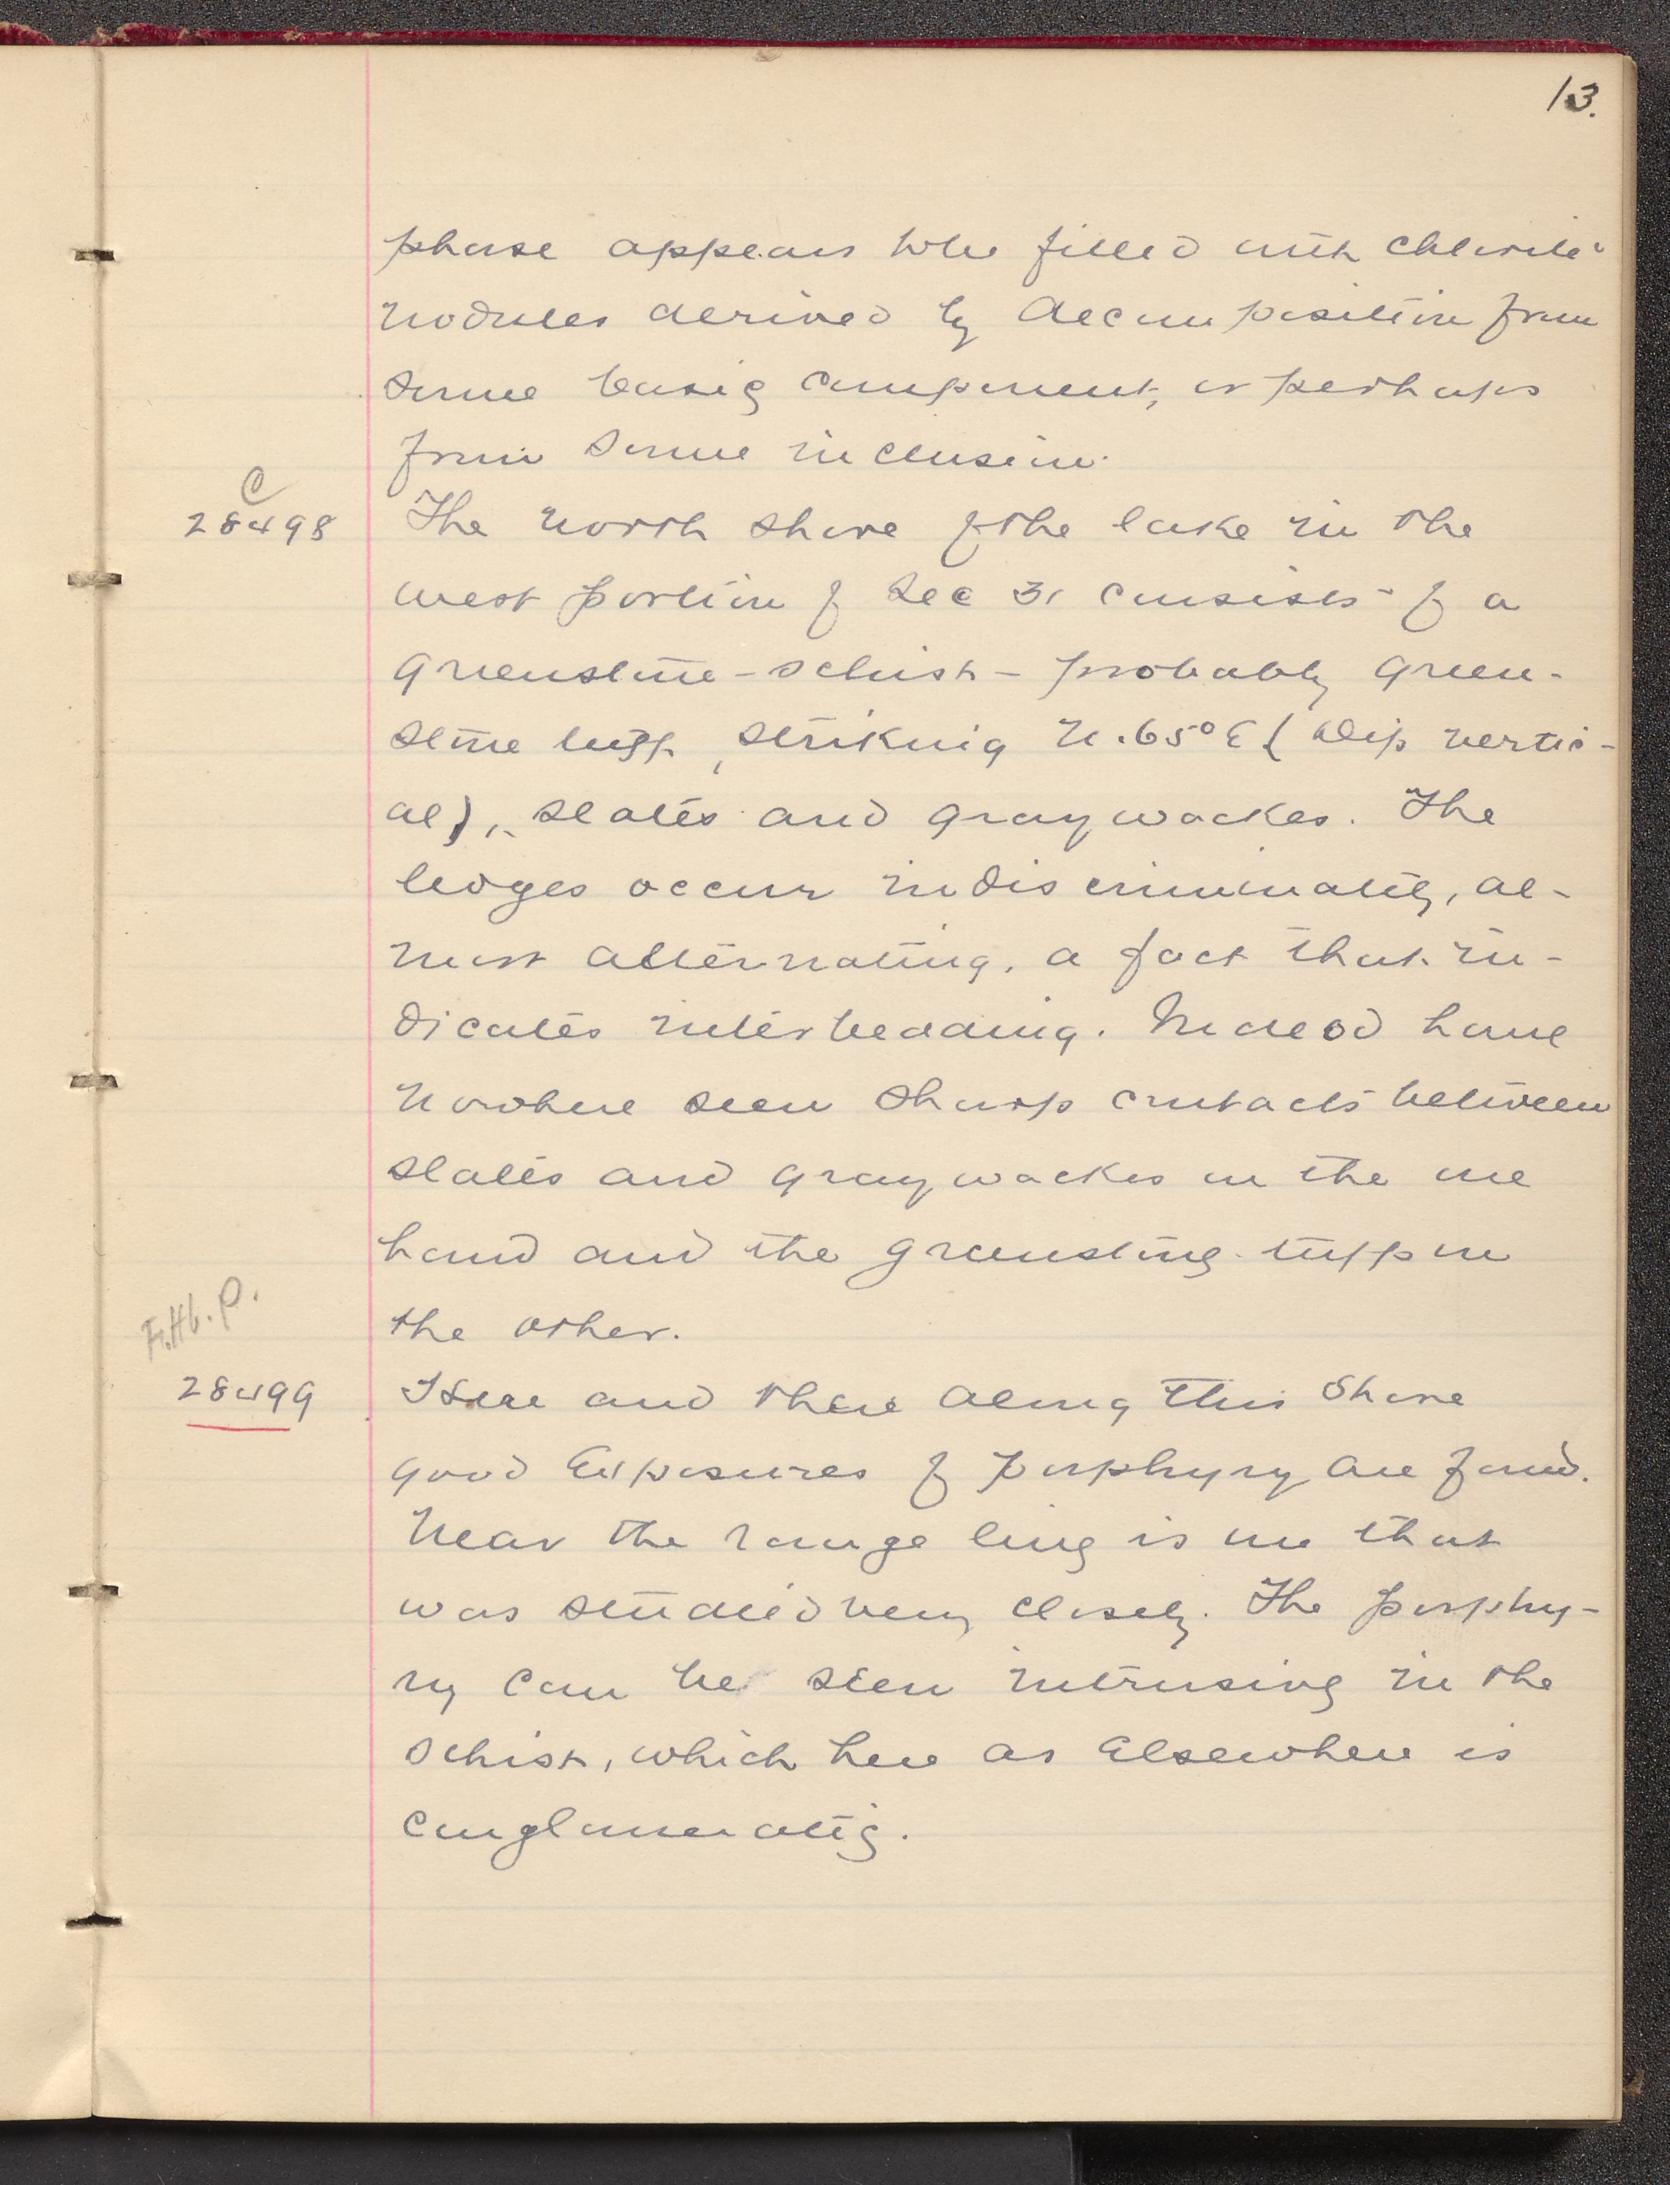 13.
phase appears to be filled with chlorite
nodules derived by decomposition from
some basic component, or perhaps
from some inclusion.
C
28498 The north shore of the lake in the
west portion of Sec 31 consists of a
greenstone-schist - probably green-
stone tuff, striking N.65°E (dip vertic-
al), slates and graywackes. The
ledges occur indiscriminately, al-
most alternating, a fact that in-
dicates interbedding. Indeed have
nowhere seen sharp contacts between
slates and graywackes on the one
hand and the greenstone tuff on
the other.
F.Hb.P.
28499 Here and there along this shore
good exposures of porphyry are found.
Near the range line is one that
was studied very closely. The porphy-
ry can be seen intrusive in the
schist, which here as elsewhere is
conglomeratic.